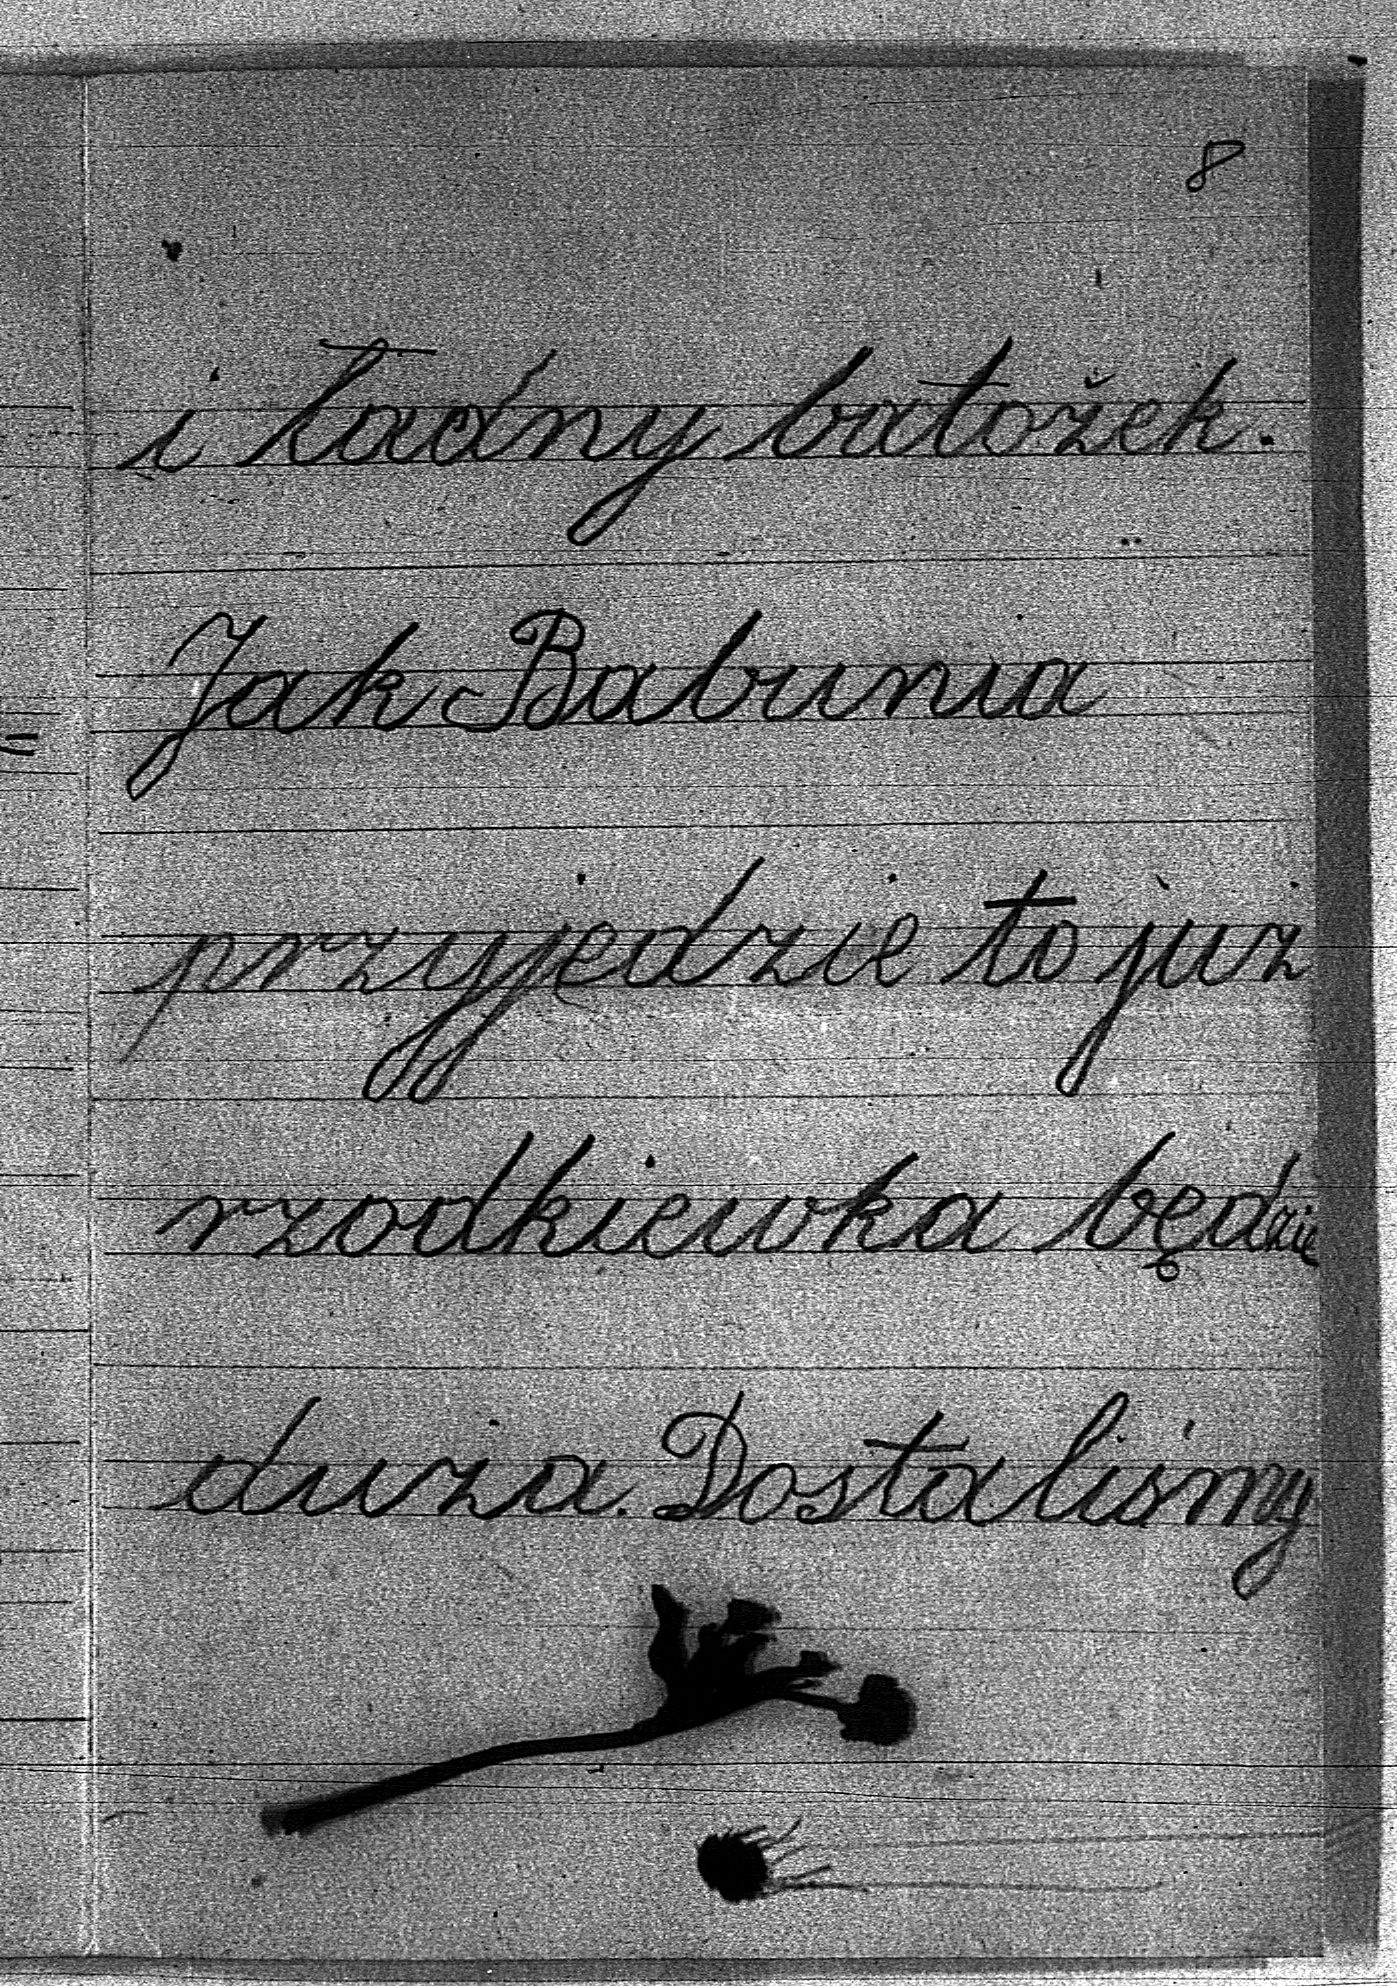 8
i ładny batożek.
Jak Babunia
przyjedzie to już
rzodkiewka będzie
duża. Dostaliśmy